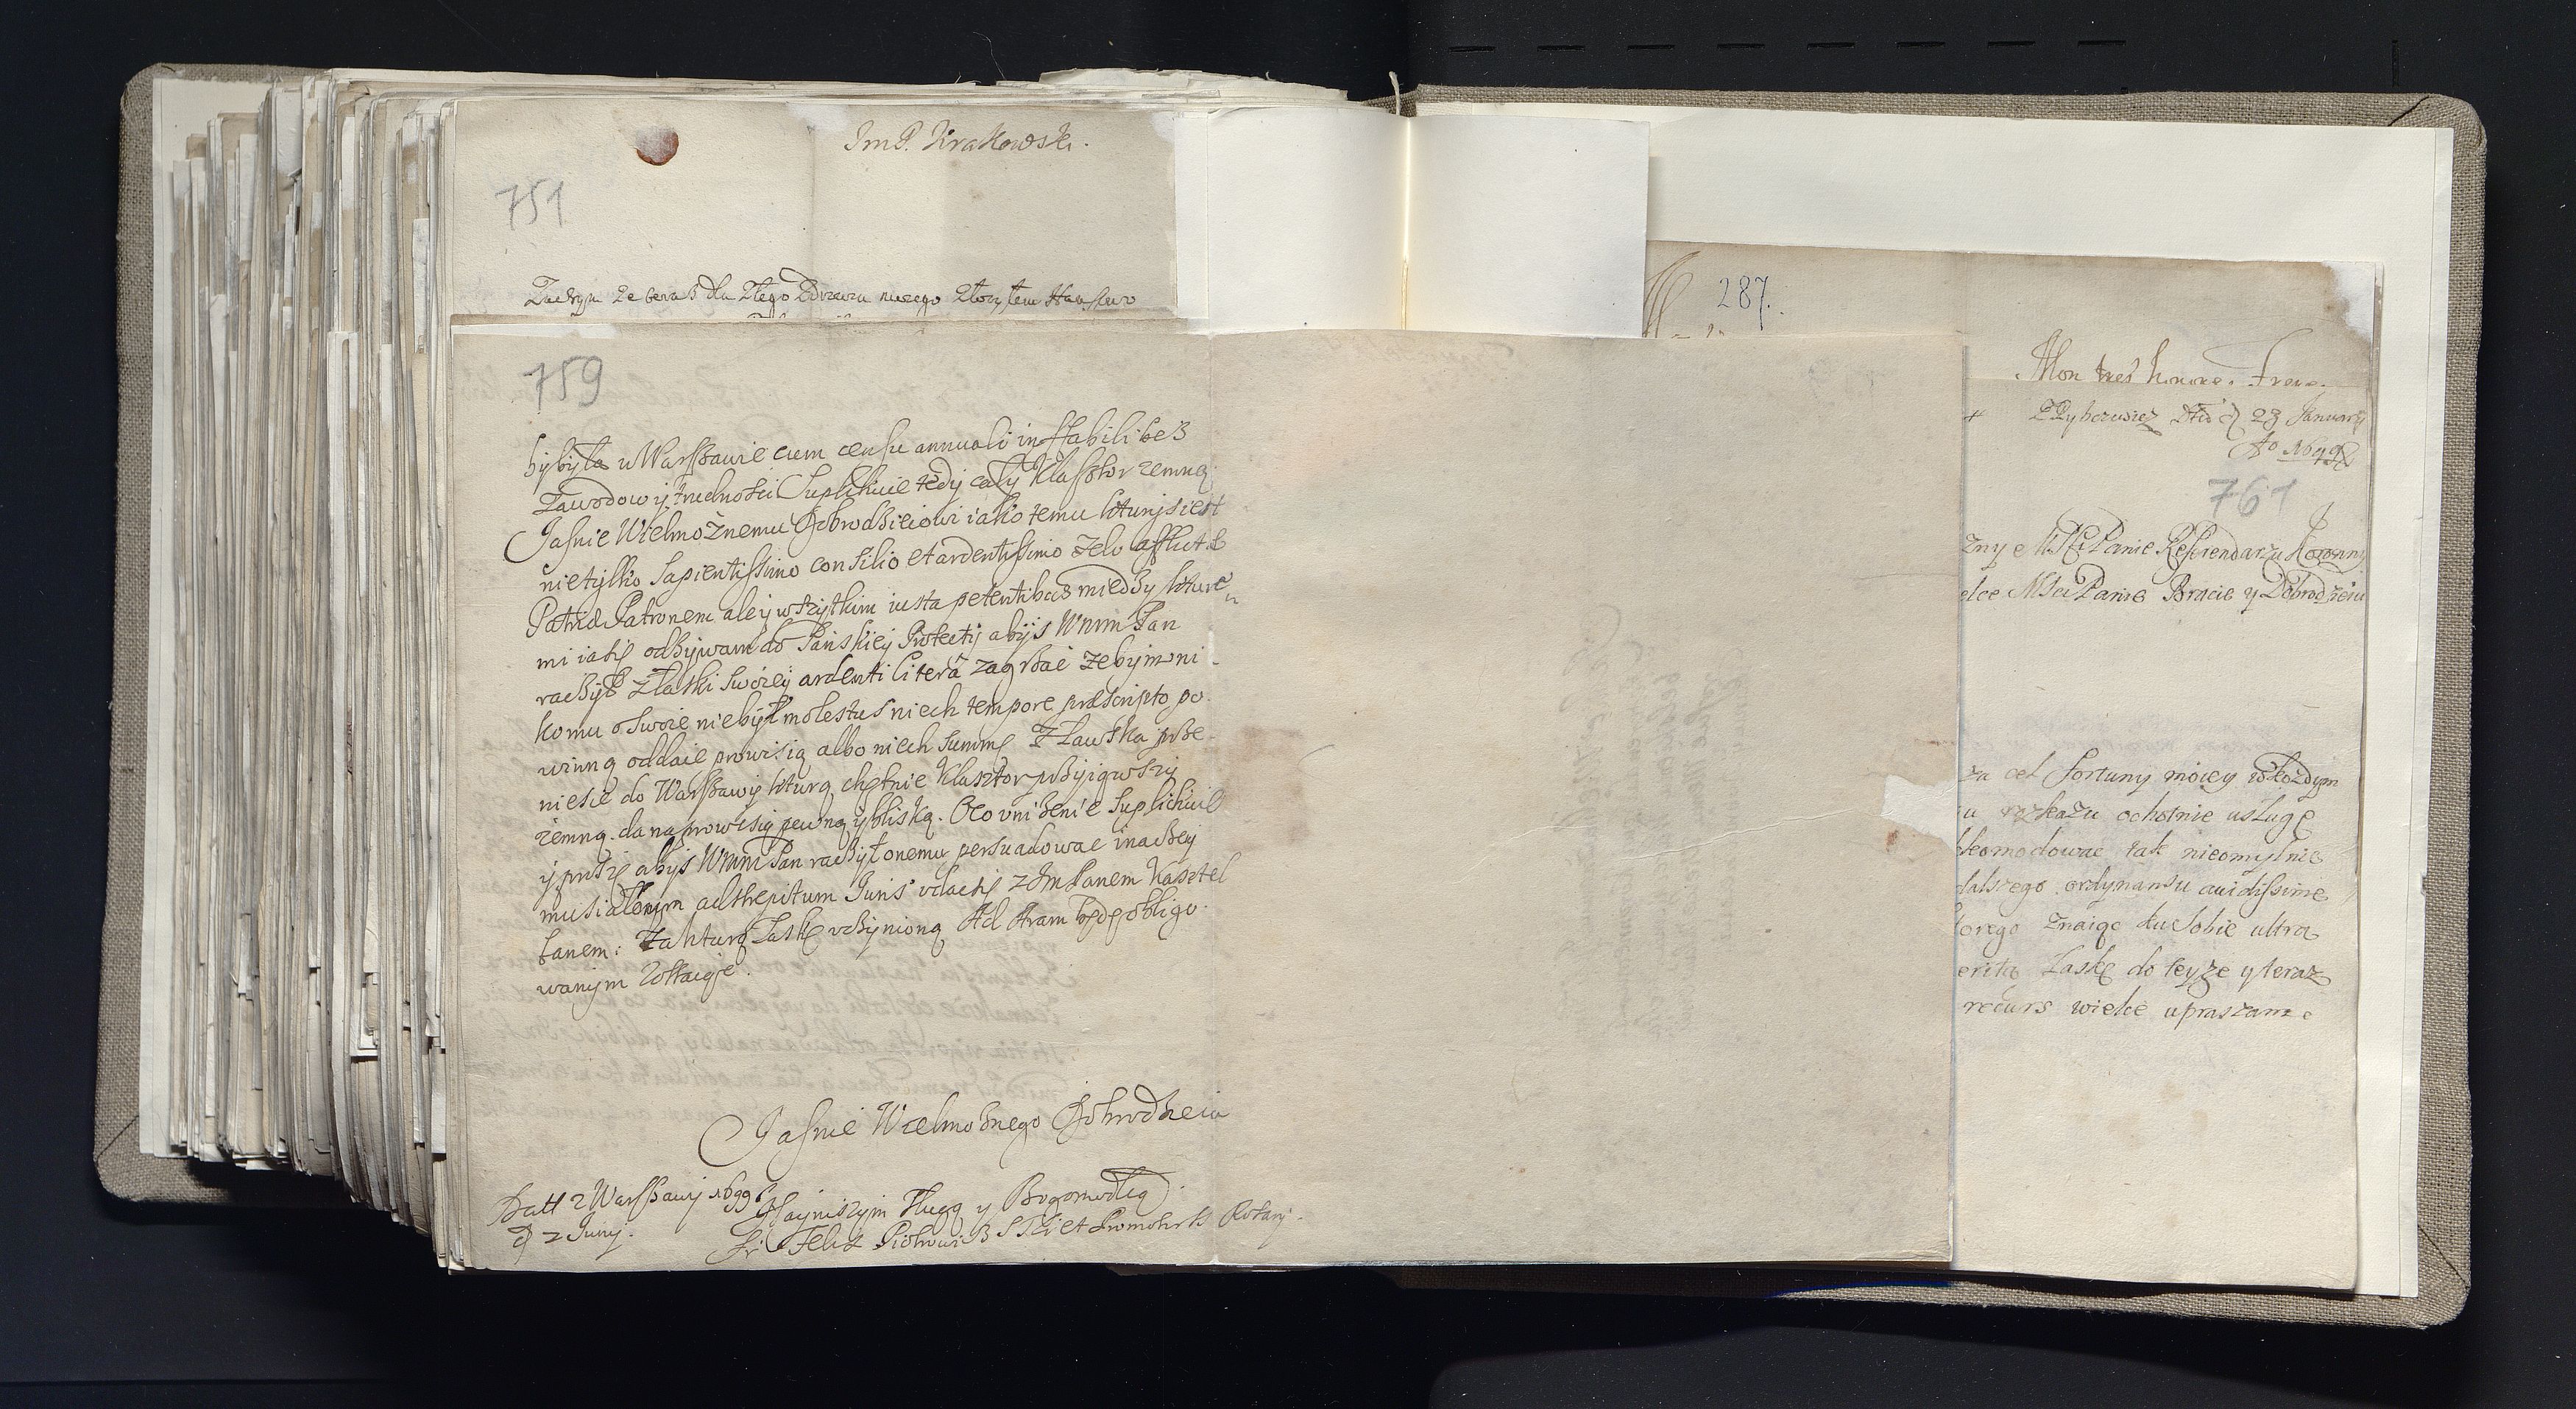 JmP. Krakowski.
751
Zactym Ze teraz dla Złego Zdrowia mego
759
by była w Warszawie cum censu annuali in stabili bez
Zawodow ij trudnosci Suplikuie tedij cały Klasztor zemną
Jasnie Wielmoznemu Dobrodzieiowi iako temu kturij iest
nietijlko Sapientissimo consilio et ardentissimo zelo afflictæ
Patriæ Patronem ale ij wszijtkim iusta petentibus miedzy kture
mi ia tesz odzijwam do Panskiej Protectij abijs Wmm Pan
raczijł z łaski swoieij ardenti litera zagrzac zebijm ni-
komu o swoie niebijł molestus niech tempore præscripto po-
winną oddaie prowisią albo niech Summę Z Ławska prze-
niesie do Warszawij kturą chętnie Klasztor przijiąwszij
zemną da na prowisią pewną ij bliską. Oco unizenie suplikuie
ij proszę abijs Wmm Pan raczijł onemu persuadowac inaczeij
musiałbijm ad strepitum Juris udac się z Jm Panem Kasztel
lanem: Za kturą Łaskę uczijnioną Ad Aram będę obligo-
wanijm Zostaiąc.
Jasnie Wielmoznego Dobrodzieia
Datt z Warszawij 1699
D 2 Junij.
Naijniszijm Sługą y Bogomodlcą
Fr Felix Piotrowicz et Promotor Rosarij.
287.
Mon tres honore Frere
23 Januarij
Ao 1699
761
zny e MSCi Panie Referendarzu Koronnij
elce MSci Panie Bracie y Dobrodzieiu
za cel fortuny moiey w każdym
u rozkazu ochotnie usługę
kkomodowac tak nieomylnie
dalszego ordynansu avidissime
torego znaiąc ku sobie ultra
erita Łaskę do teyze y teraz
recurs wielce upraszam